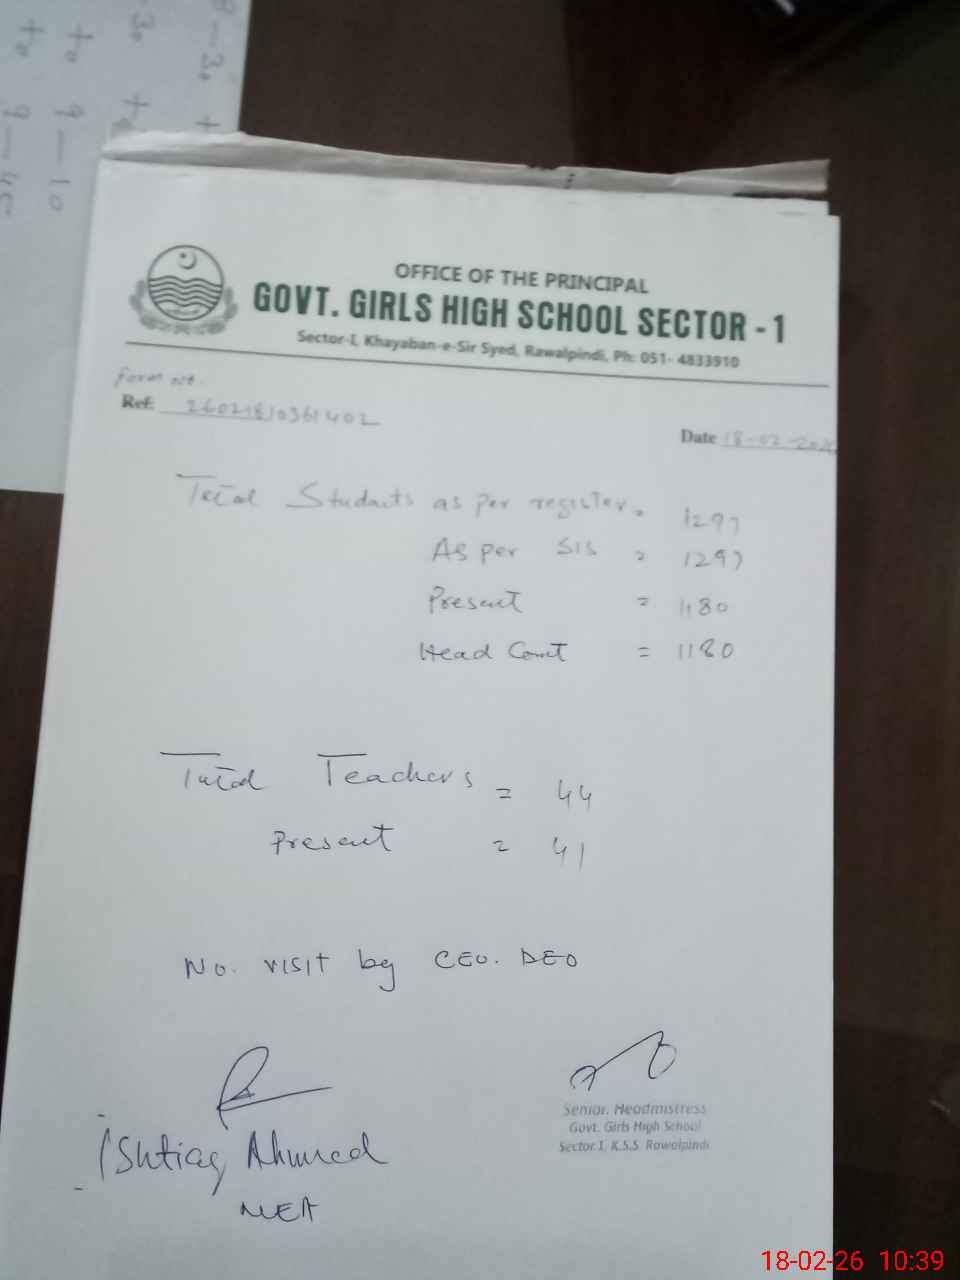 8-30 +
-30 to
to 9-10
to 9-45
OFFICE OF THE PRINCIPAL
GOVT. GIRLS HIGH SCHOOL SECTOR - 1
Sector-I, Khayaban-e-Sir Syed, Rawalpindi, Ph: 051- 4833910
Form no.
Ref: 26021810361402
Date 18-02-2026
Total Students as per register = 1297
As per SIS = 1297
Present = 1180
Head Count = 1180
Total Teachers = 44
Present = 41
No. visit by CEO. DEO
Ishtiaq Ahmed
MEA
Senior. Headmistress
Govt. Girls High School
Sector 1, K.S.S. Rawalpindi
18-02-26 10:39